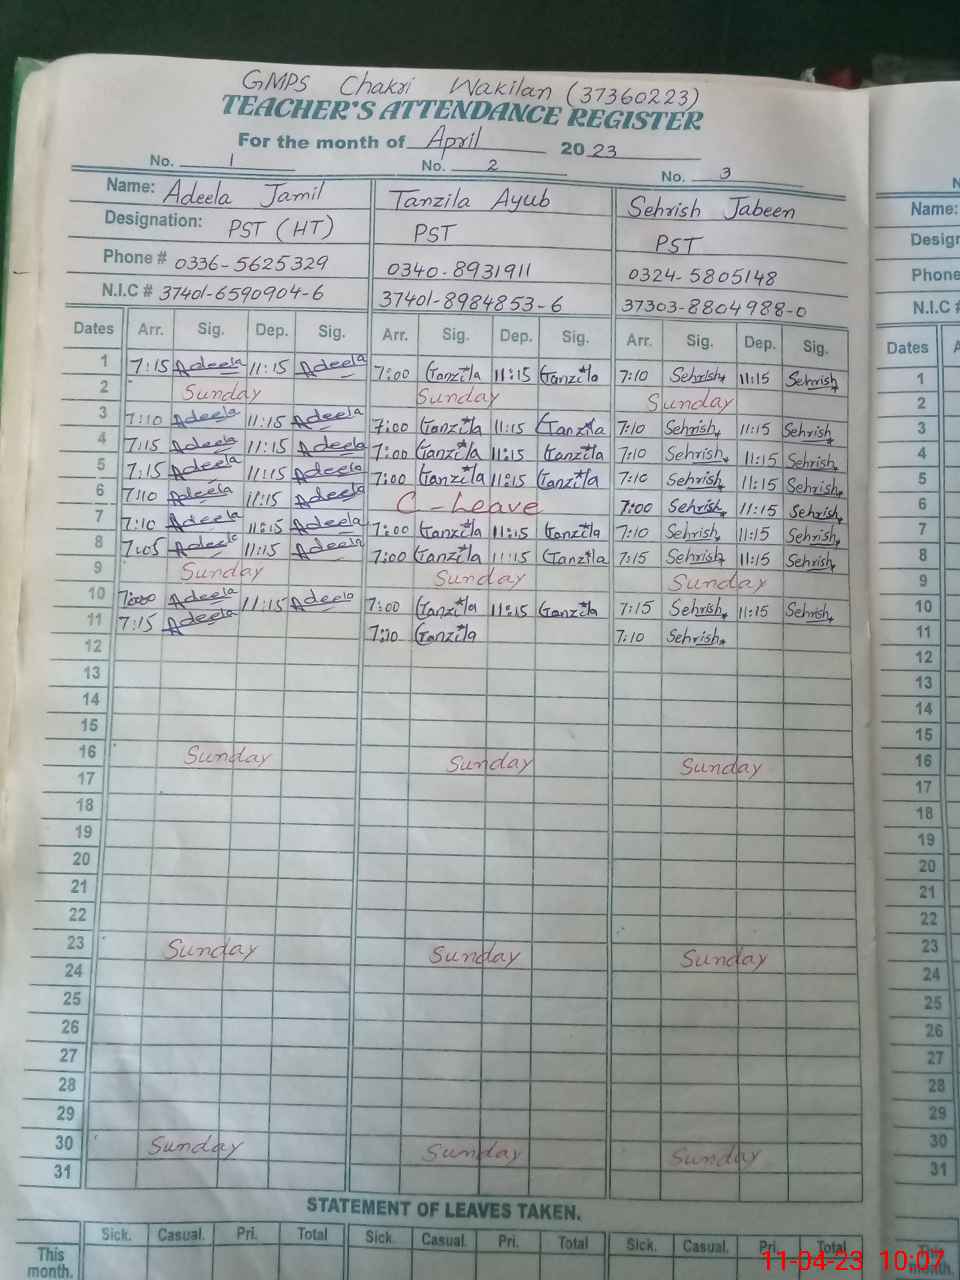 GMPS Chakri Wakilan (37360223)
TEACHER'S ATTENDANCE REGISTER
For the month of April 2023
No. 1 No. 2 No. 3
Name: Adeela Jamil Tanzila Ayub Sehrish Jabeen Name:
Designation: PST (HT) PST PST Design
Phone # 0336-5625329 0340-8931911 0324-5805148 Phone
N.I.C # 37401-6590904-6 37401-8984853-6 37303-8804988-0 N.I.C #
Dates Arr. Sig. Dep. Sig. Arr. Sig. Dep. Sig. Arr. Sig. Dep. Sig. Dates
1 7:15 Adeela 11:15 Adeela 7:00 Tanzila 11:15 Tanzila 7:10 Sehrish 11:15 Sehrish 1
2 Sunday Sunday Sunday 2
3 7:10 Adeela 11:15 Adeela 7:00 Tanzila 11:15 Tanzila 7:10 Sehrish 11:15 Sehrish 3
4 7:15 Adeela 11:15 Adeela 7:00 Tanzila 11:15 Tanzila 7:10 Sehrish 11:15 Sehrish 4
5 7:15 Adeela 11:15 Adeela 7:00 Tanzila 11:15 Tanzila 7:10 Sehrish 11:15 Sehrish 5
6 7:10 Adeela 11:15 Adeela C-Leave 7:00 Sehrish 11:15 Sehrish 6
7 7:10 Adeela 11:15 Adeela 7:00 Tanzila 11:15 Tanzila 7:10 Sehrish 11:15 Sehrish 7
8 7:05 Adeela 11:15 Adeela 7:00 Tanzila 11:15 Tanzila 7:15 Sehrish 11:15 Sehrish 8
9 Sunday Sunday Sunday 9
10 Adeela 11:15 Adeela 7:00 Tanzila 11:15 Tanzila 7:15 Sehrish 11:15 Sehrish 10
11 7:15 Adeela Tanzila 7:10 Sehrish 11
12 12
13 13
14 14
15 15
16 Sunday Sunday Sunday 16
17 17
18 18
19 19
20 20
21 21
22 22
23 Sunday Sunday Sunday 23
24 24
25 25
26 26
27 27
28 28
29 29
30 Sunday Sunday Sunday 30
31 31
STATEMENT OF LEAVES TAKEN.
Sick. Casual. Pri. Total Sick. Casual. Pri. Total Sick. Casual. Pri. Total
This month. This month.
11-04-23 10:07